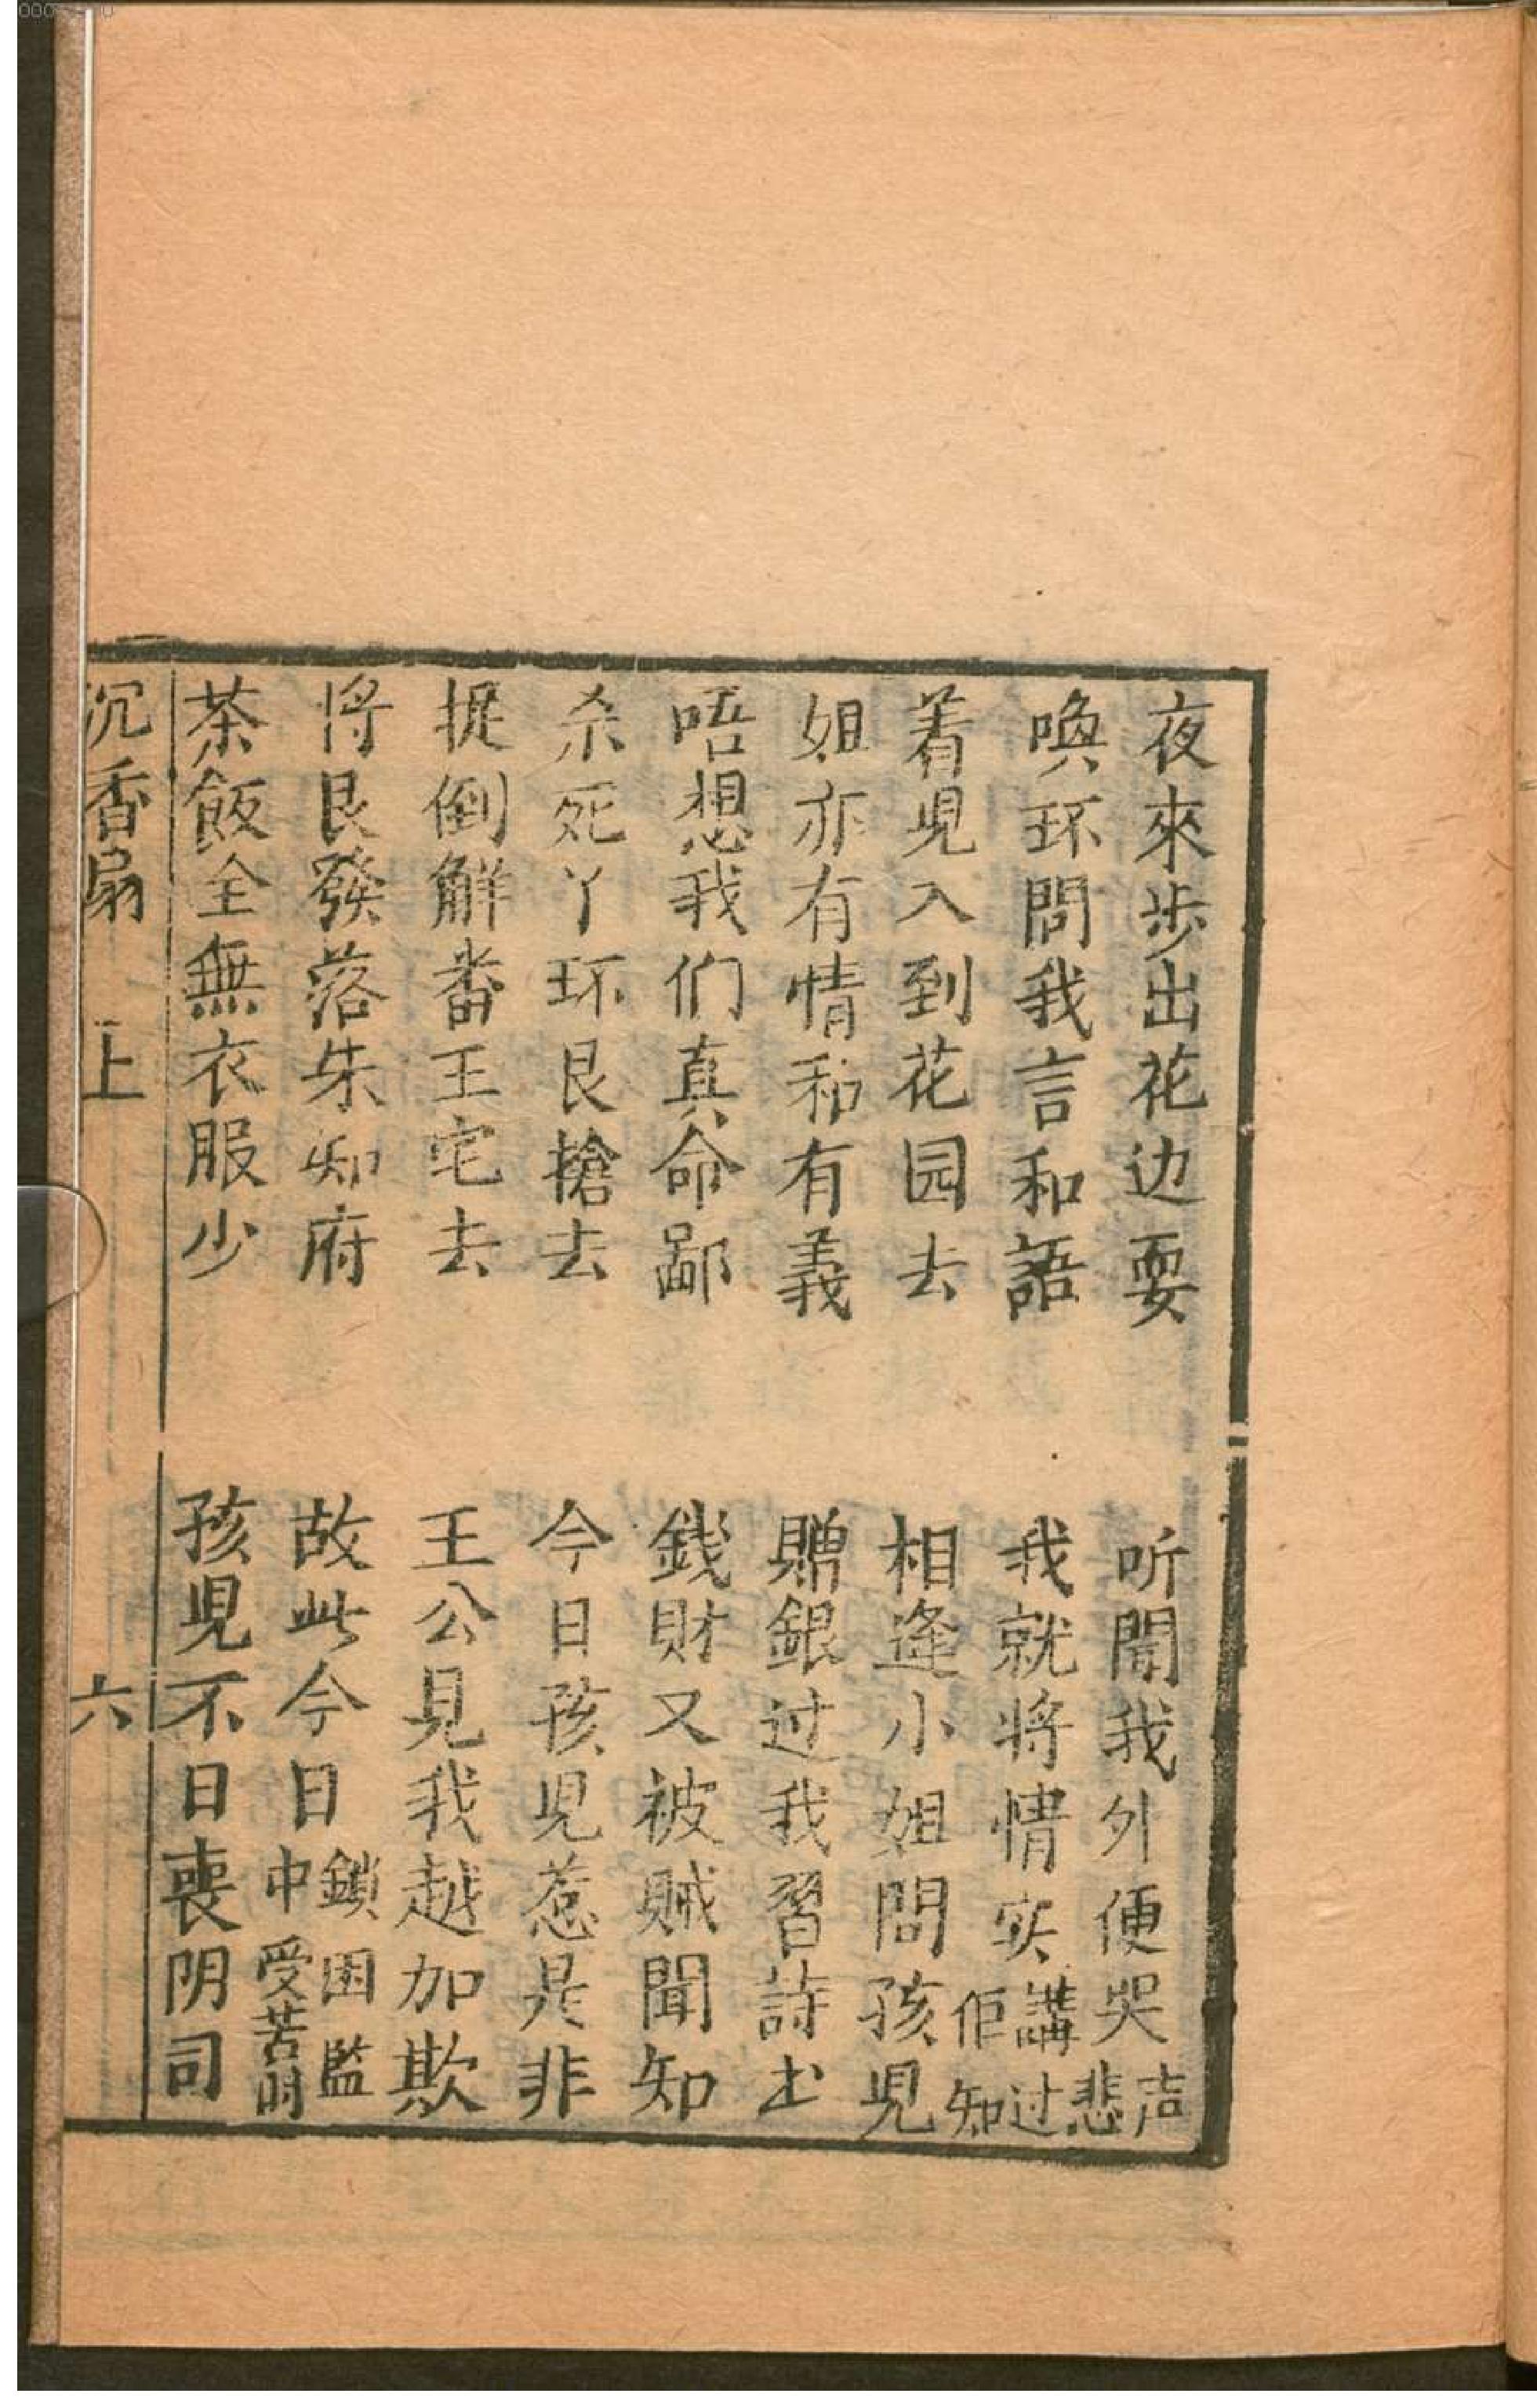 夜來步出花边耍　听聞我外便哭声悲
喚环問我言和語　我就将情实講过佢知
着児入到花园去　相逢小姐問孩児
姐亦有情和有義　贈銀过我習詩书
唔想我们真命鄙　錢財又被贼聞知
杀死丫环艮搶去　今日孩児惹是非
捉倒解番王宅去　王公見我越加欺
将艮發落朱知府　故此今日鎖困監中受苦時
茶飯全無衣服少　孩児不日喪阴司
沉香扇　上　六